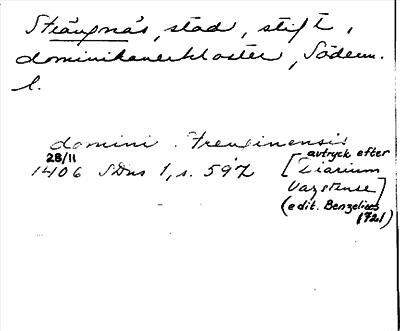 Strängnäs, stad, stift,
dominikanerkloster, Söderm.
l.
domini . Trenginensis
28/11 avtryck efter
1406 SDns 1, s. 597 [Diarium
Vazstense]
(edit. Benzelius
1721)